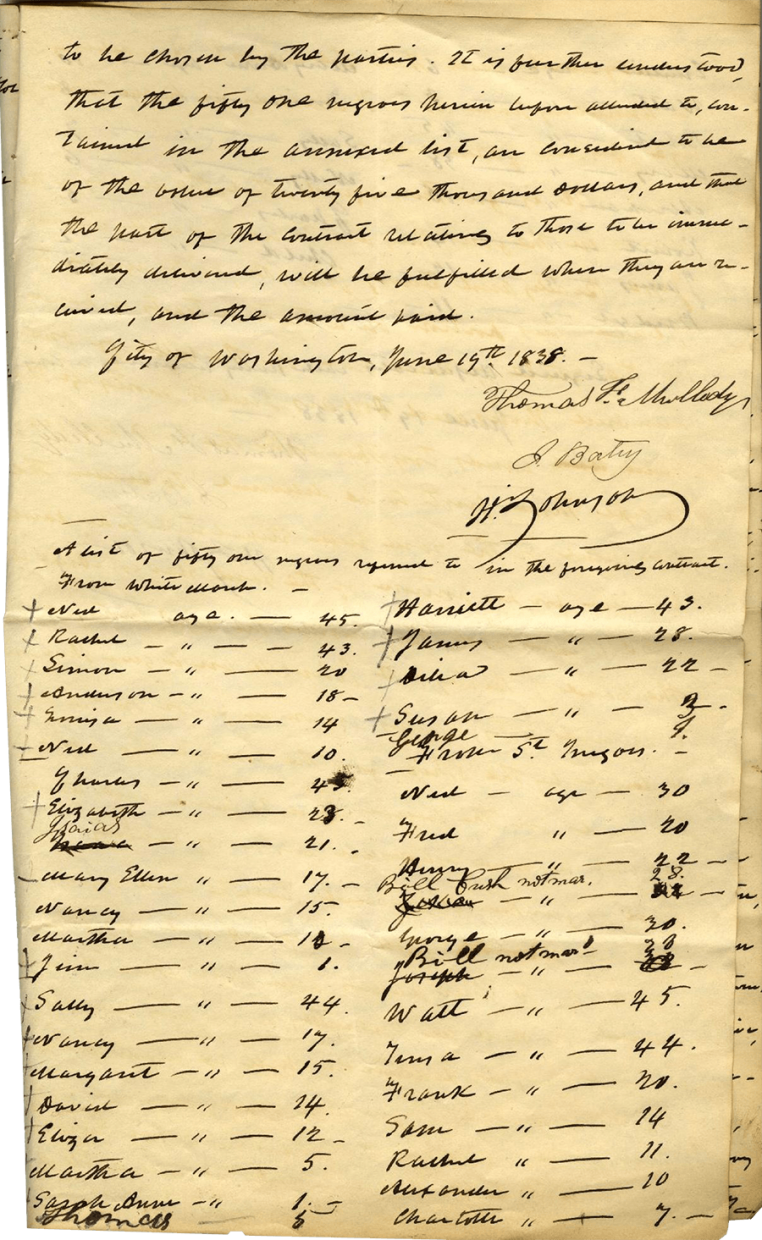 to be chosen by the parties. It is further understood,
that the fifty one negroes herein before alluded to, con-
tained in the annexed list, are considered to be
of the value of twenty five thousand Dollars, and that
the part of the contract relating to those to be imme-
diately delivered, will be fulfilled when they are re-
ceived, and the amount paid.
City of Washington, June 19th 1838. –
Thomas F. Mulledy
J. Batey
H. Johnson
A list of fifty one negroes referred to in the foregoing contract.
From White Marsh. –
Ned age. – 45.
Rachel – " – 43.
Simon – " – 20
Anderson – " – 18 –
Louisa – " – 14
Ned – " – 10.
Charles – "
Elizabeth – " – 23. –
Isaias
– " – 21. –
Mary Ellen – " – 17. –
Nancy – " – 15.
Martha – " – 10 –
Jim – " – 1.
Sally – " – 44.
Nancy – " – 17.
Margaret – " – 15.
David – " – 14.
Eliza – " – 12 –
Martha – " – 5.
Sarah Anne – " 1. –
Thomas – 5
Harriett – age – 43.
James – " – 28.
Delia – " – 22 –
Susan – " –
George 9.
From St. Inigoes. –
Ned – age – 30
Fred " – 20
Henry " – 22 –
Bill Cush not mar. 28.
– " –
George – " – 20.
Bill not mar 28
Joseph – " –
Watt – " – 45.
Teresa – " – 44.
Frank – " – 20.
Sam – " – 14
Rachel " – 11.
Alexander " – 10
Charlotte " – 7. –